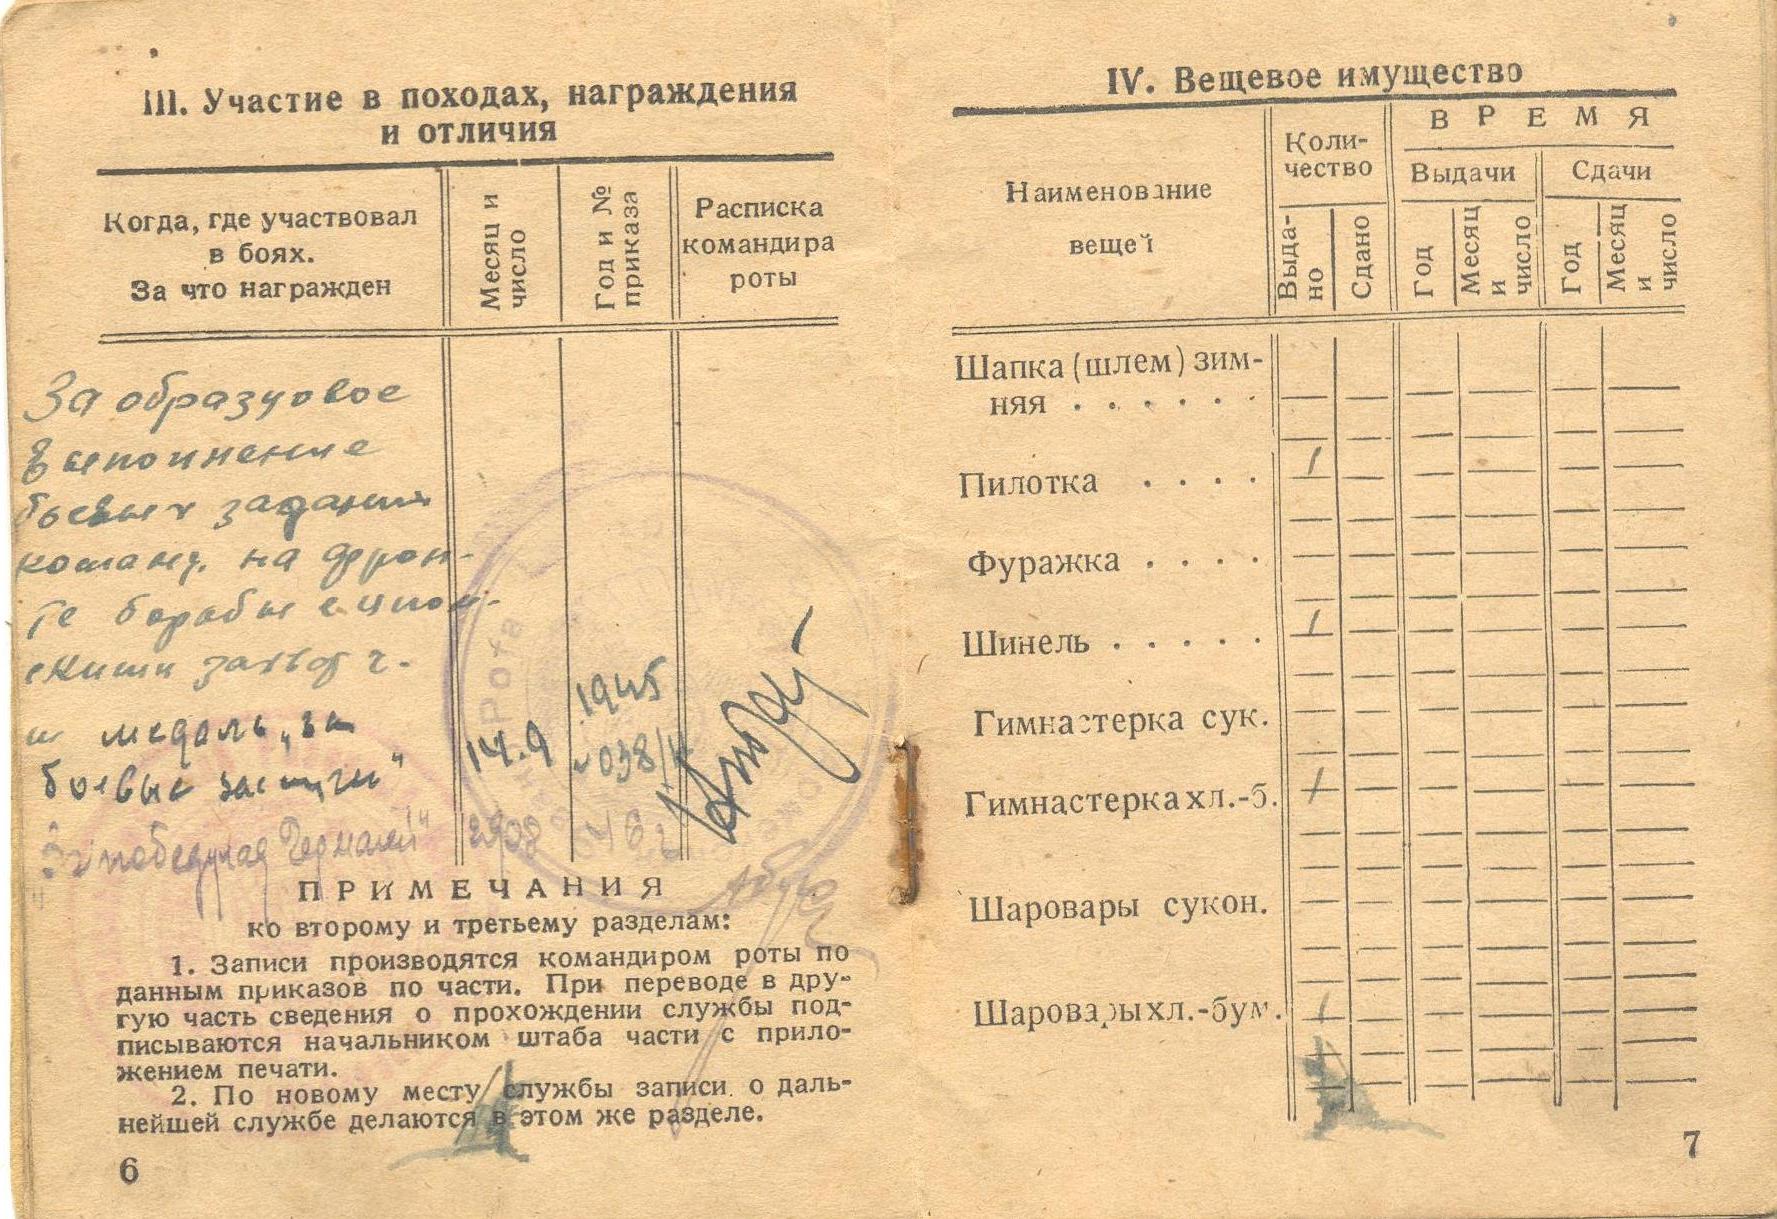 III. Участие в походах, награждения
и отличия
Когда, где участвовал
в боях.
За что награжден
Месяц и
число
Год и №
приказа
Расписка
командира
роты
За образцовое
выполнение
боевых заданий
команд. на фрон-
те борьбы с япон-
скими захват ч.
медаль „за
боевые заслуги"
14.9
1945
038/н
За победу над Германией"
ПРИМЕЧАНИЯ
ко второму и третьему разделам:
1. Записи производятся командиром роты по
данным приказов по части. При переводе в дру-
гую часть сведения о прохождении службы под-
писываются начальником штаба части с прило-
жением печати.
2. По новому месту службы записи о даль-
нейшей службе делаются в этом же разделе.
6
IV. Вещевое имущество
Наименование
вещей
Коли-
чество
ВРЕМЯ
Выдачи
Сдачи
Выда-
но
Сдано
Год
Месяц
и
число
Год
Месяц
и
число
Шапка (шлем) зим-
няя . . . . . .
Пилотка . . . . 1
Фуражка . . . .
Шинель . . . . . 1
Гимнастерка сук.
Гимнастерка хл.-б. 1
Шаровары сукон.
Шаровары хл.-бум. 1
7